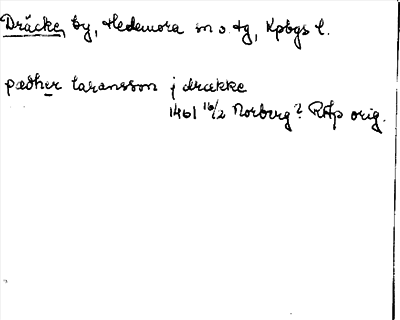 Dräcke, by, Hedemora sn o. tg, Kpbgs l.
pædher laransson j drække
1461 16/2 Norberg? RAp orig.